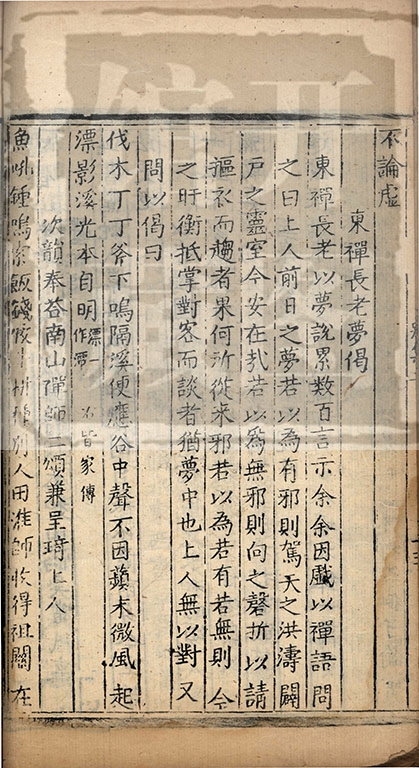 不論虛
東禪長老夢偈
東禪長老以夢說累數百言示余余因戲以禪語問
之曰上人前日之夢若以為有邪則駕天之洪濤闢
戶之靈室今安在㢤若以為無邪則向之磬折以請
摳衣而趨者果何所從来邪若以為若有若無則今
之盱衡抵掌對客而談者猶夢中也上人無以對又
問以偈曰
伐木丁丁斧下鳴隔溪便應谷中聲不因蘋末微風起
漂影溪光本自明漂一作 皆家傳
次韻奉荅南山禪師二頌兼呈琦上人
魚吼鍾鳴索飯錢 別人田淮師收得祖關在